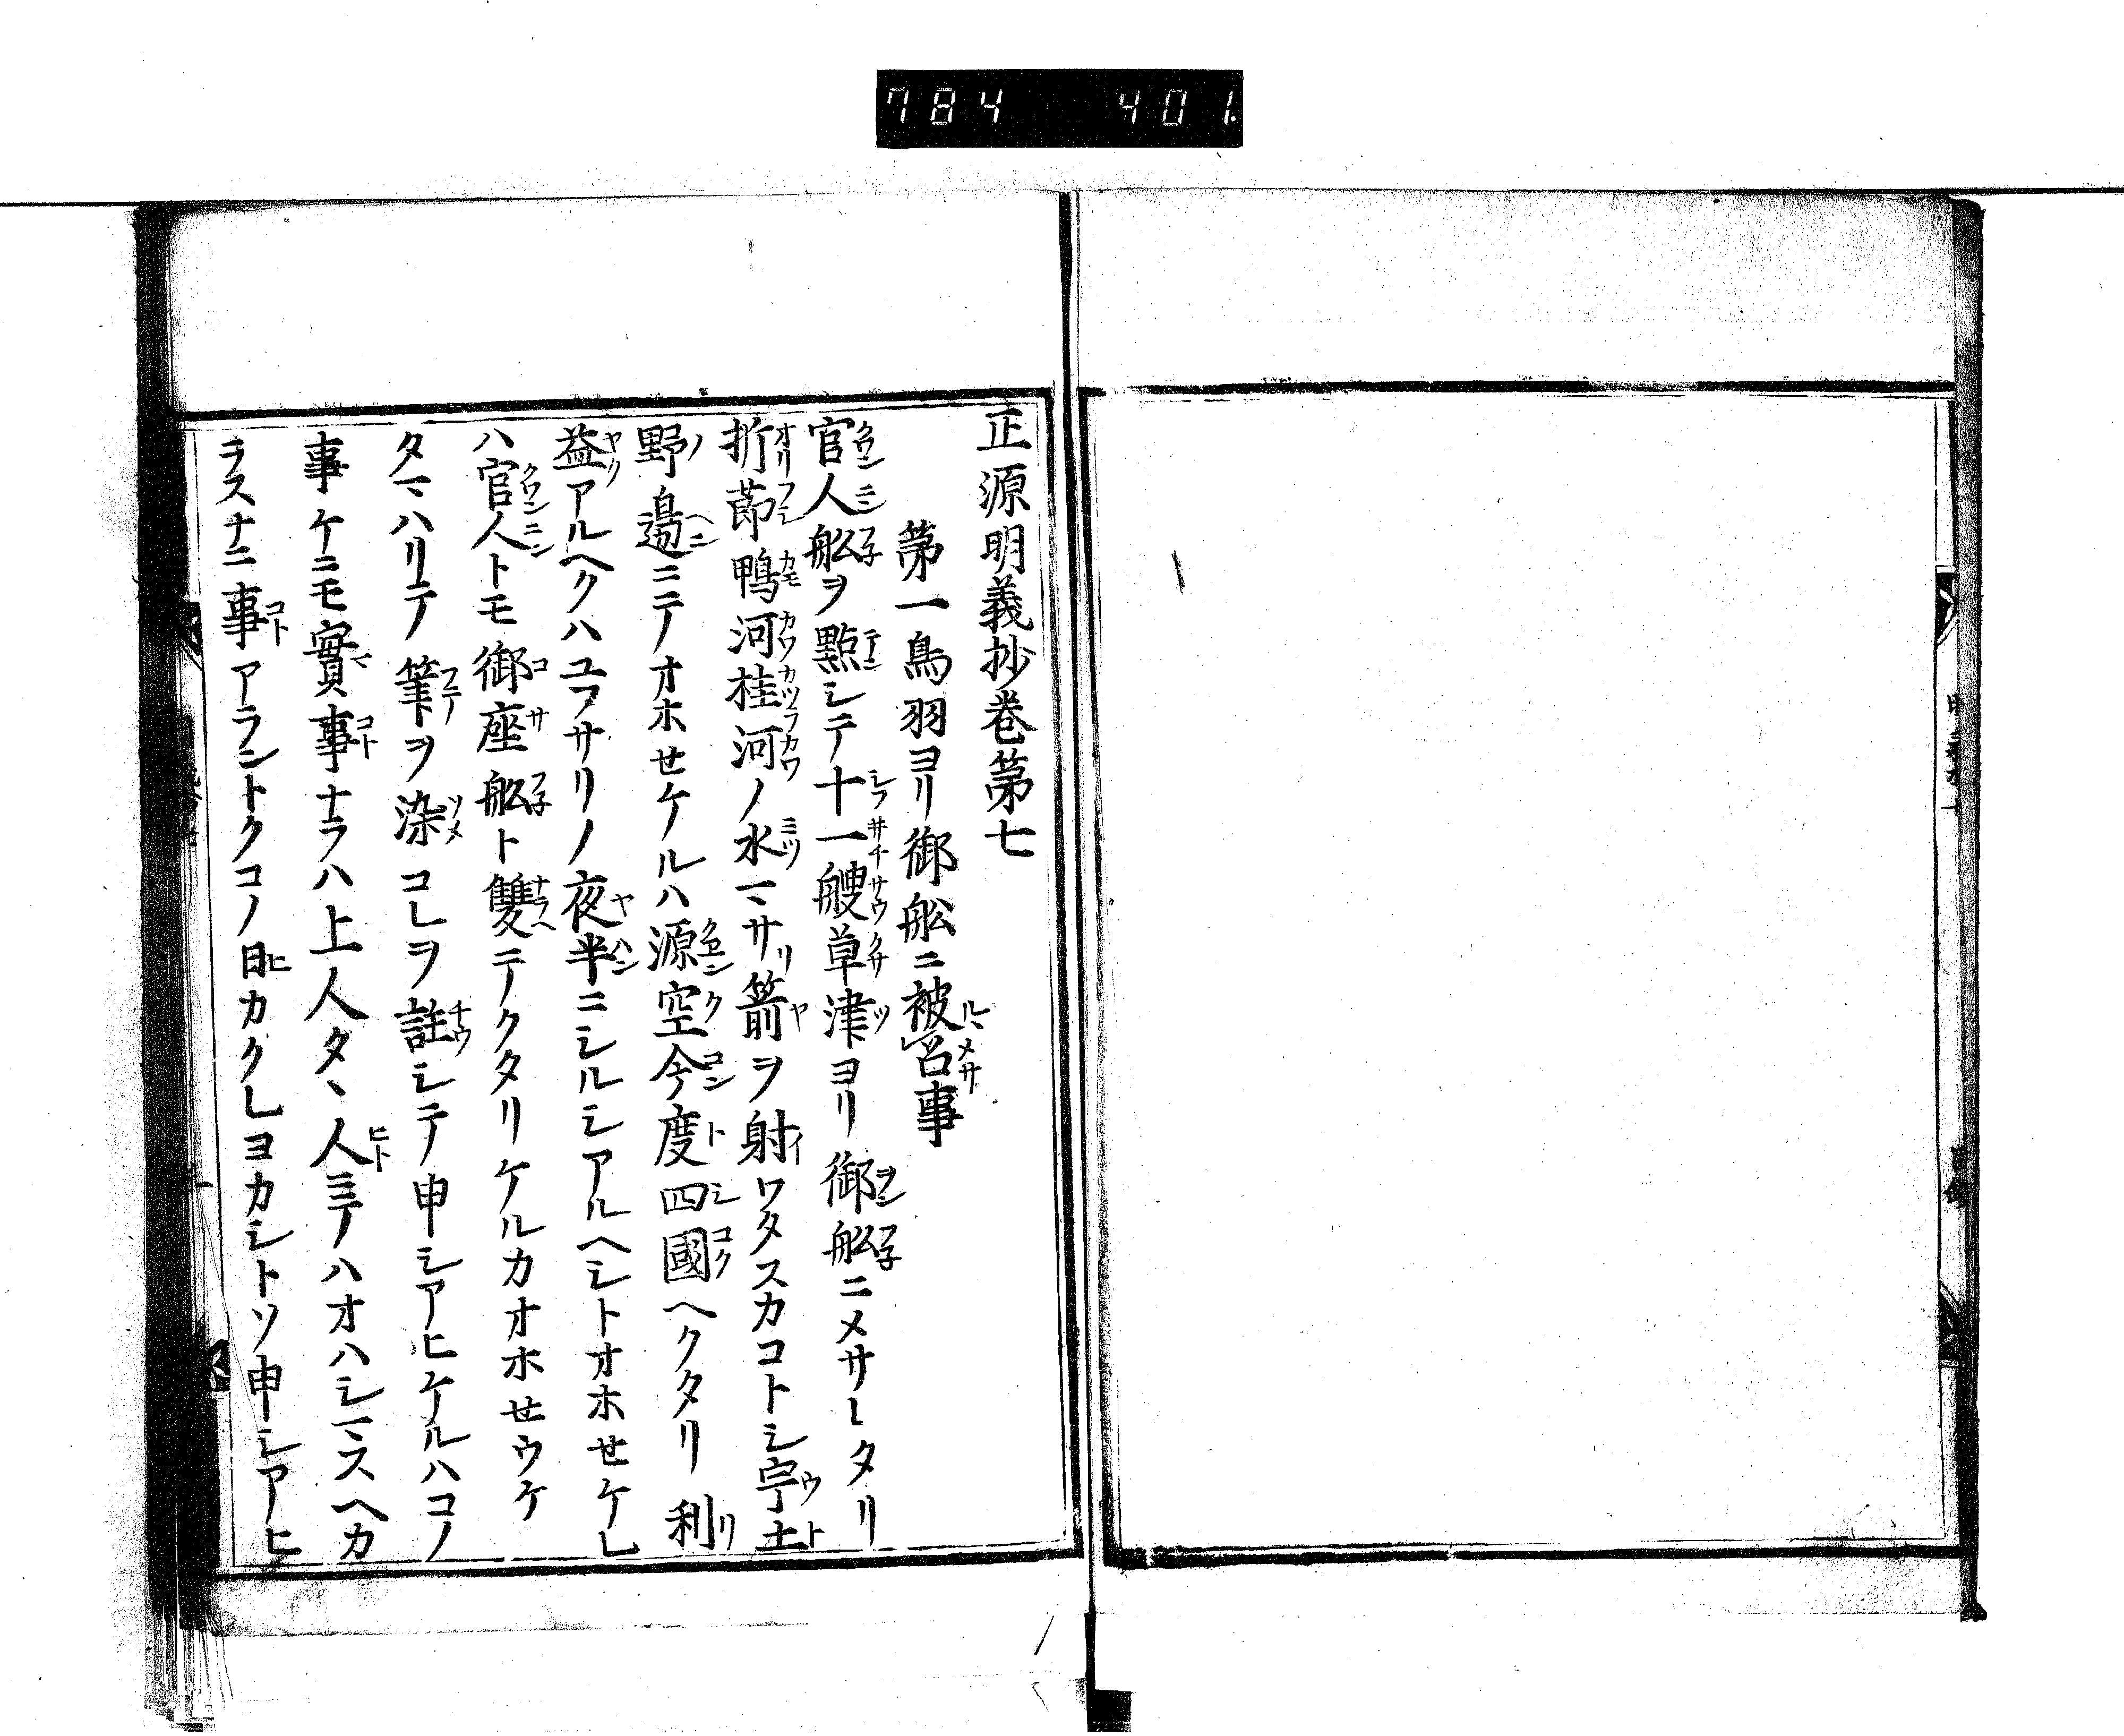 784 401
正源明義抄卷第七
第一鳥羽ヨリ御舩ニ被召事
官人舩ヲ點シテ十一艘草津ヨリ御舩ニメサレタリ
折莭鴨河桂河ノ水マサリ箭ヲ射ワタスカコトシ宇土
野邊ニテオホせケルハ源空今度四國ヘクタリ利
益アルヘクハユフサリノ夜半ニシルシアルヘシトオホせケレ
ハ官人トモ御座舩ト雙テクタリケルカオホせウケ
タマハリテ筆ヲ染コレヲ註シテ申シアヒケルハコノ
事ケニモ實事ナラハ上人タヽ人ニテハオハシマスヘカ
ラスナニ事アラントクコノ日カクレヨカシトソ申シアヒ